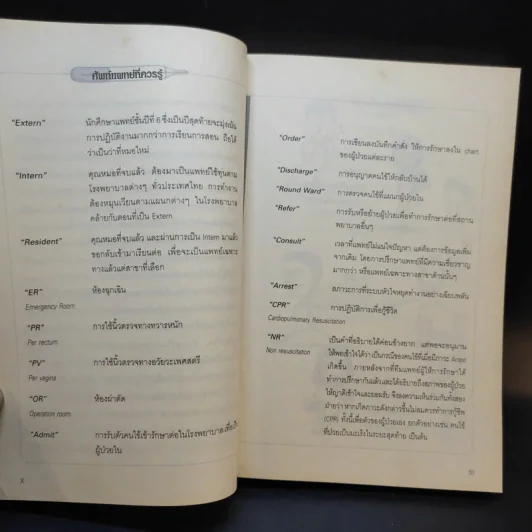 ศัพท์แพทย์ที่ควรรู้
"Extern" นักศึกษาแพทย์ชั้นปีที่ 6 ซึ่งเป็นปีสุดท้ายจะมุ่งเน้น
การปฏิบัติงานมากกว่าการเรียนการสอน ถือได้
ว่าเป็นว่าที่หมอใหม่
"Intern" คุณหมอที่จบแล้ว ต้องมาเป็นแพทย์ใช้ทุนตาม
โรงพยาบาลต่างๆ ทั่วประเทศไทย การทำงาน
ต้องหมุนเวียนตามแผนกต่างๆ ในโรงพยาบาล
คล้ายกับตอนที่เป็น Extern
"Resident" คุณหมอที่จบแล้ว และผ่านการเป็น Intern มาแล้ว
ขอกลับเข้ามาเรียนต่อ เพื่อจะเป็นแพทย์เฉพาะ
ทางแล้วแต่สาขาที่เลือก
"ER" ห้องฉุกเฉิน
Emergency Room
"PR" การใช้นิ้วตรวจทางทวารหนัก
Per rectum
"PV" การใช้นิ้วตรวจทางอวัยวะเพศสตรี
Per vagina
"OR" ห้องผ่าตัด
Operation room
"Admit" การรับตัวคนไข้เข้ารักษาต่อในโรงพยาบาลเพื่อเป็น
ผู้ป่วยใน
X
"Order" การเขียนลงบันทึกคำสั่ง ให้การรักษาลงใน chart
ของผู้ป่วยแต่ละราย
"Discharge" การอนุญาตคนไข้ให้กลับบ้านได้
"Round Ward" การตรวจคนไข้ที่แผนกผู้ป่วยใน
"Refer" การรับหรือย้ายผู้ป่วยเพื่อทำการรักษาต่อที่สถาน
พยาบาลอื่นๆ
"Consult" เวลาที่แพทย์ไม่แน่ใจปัญหา แต่ต้องการข้อมูลเพิ่ม
จากเดิม โดยการปรึกษาแพทย์ที่มีความเชี่ยวชาญ
มากกว่า หรือแพทย์เฉพาะทางสาขาด้านนั้นๆ
"Arrest" สภาวะการที่ระบบหัวใจหยุดทำงานอย่างเฉียบพลัน
"CPR" การปฏิบัติการเพื่อกู้ชีวิต
Cardiopulmonary Resuscitation
"NR" เป็นคำที่อธิบายได้ค่อนข้างยาก แต่พอจะอนุมาน
Non resuscitation ให้พอเข้าใจได้ว่าเป็นกรณีของคนไข้ที่เมื่อมีภาวะ Arrest
เกิดขึ้น ภายหลังจากที่ทีมแพทย์ผู้ให้การรักษาได้
ทำการปรึกษากันแล้วและได้อธิบายถึงสภาพของผู้ป่วย
ให้ญาติเข้าใจและยอมรับ จึงลงความเห็นร่วมกันทั้งสอง
ฝ่ายว่า หากเกิดภาวะดังกล่าวขึ้นไม่สมควรทำการกู้ชีพ
(CPR) ทั้งนี้เพื่อตัวของผู้ป่วยเอง ยกตัวอย่างเช่น คนไข้
ที่ป่วยเป็นมะเร็งในระยะสุดท้าย เป็นต้น